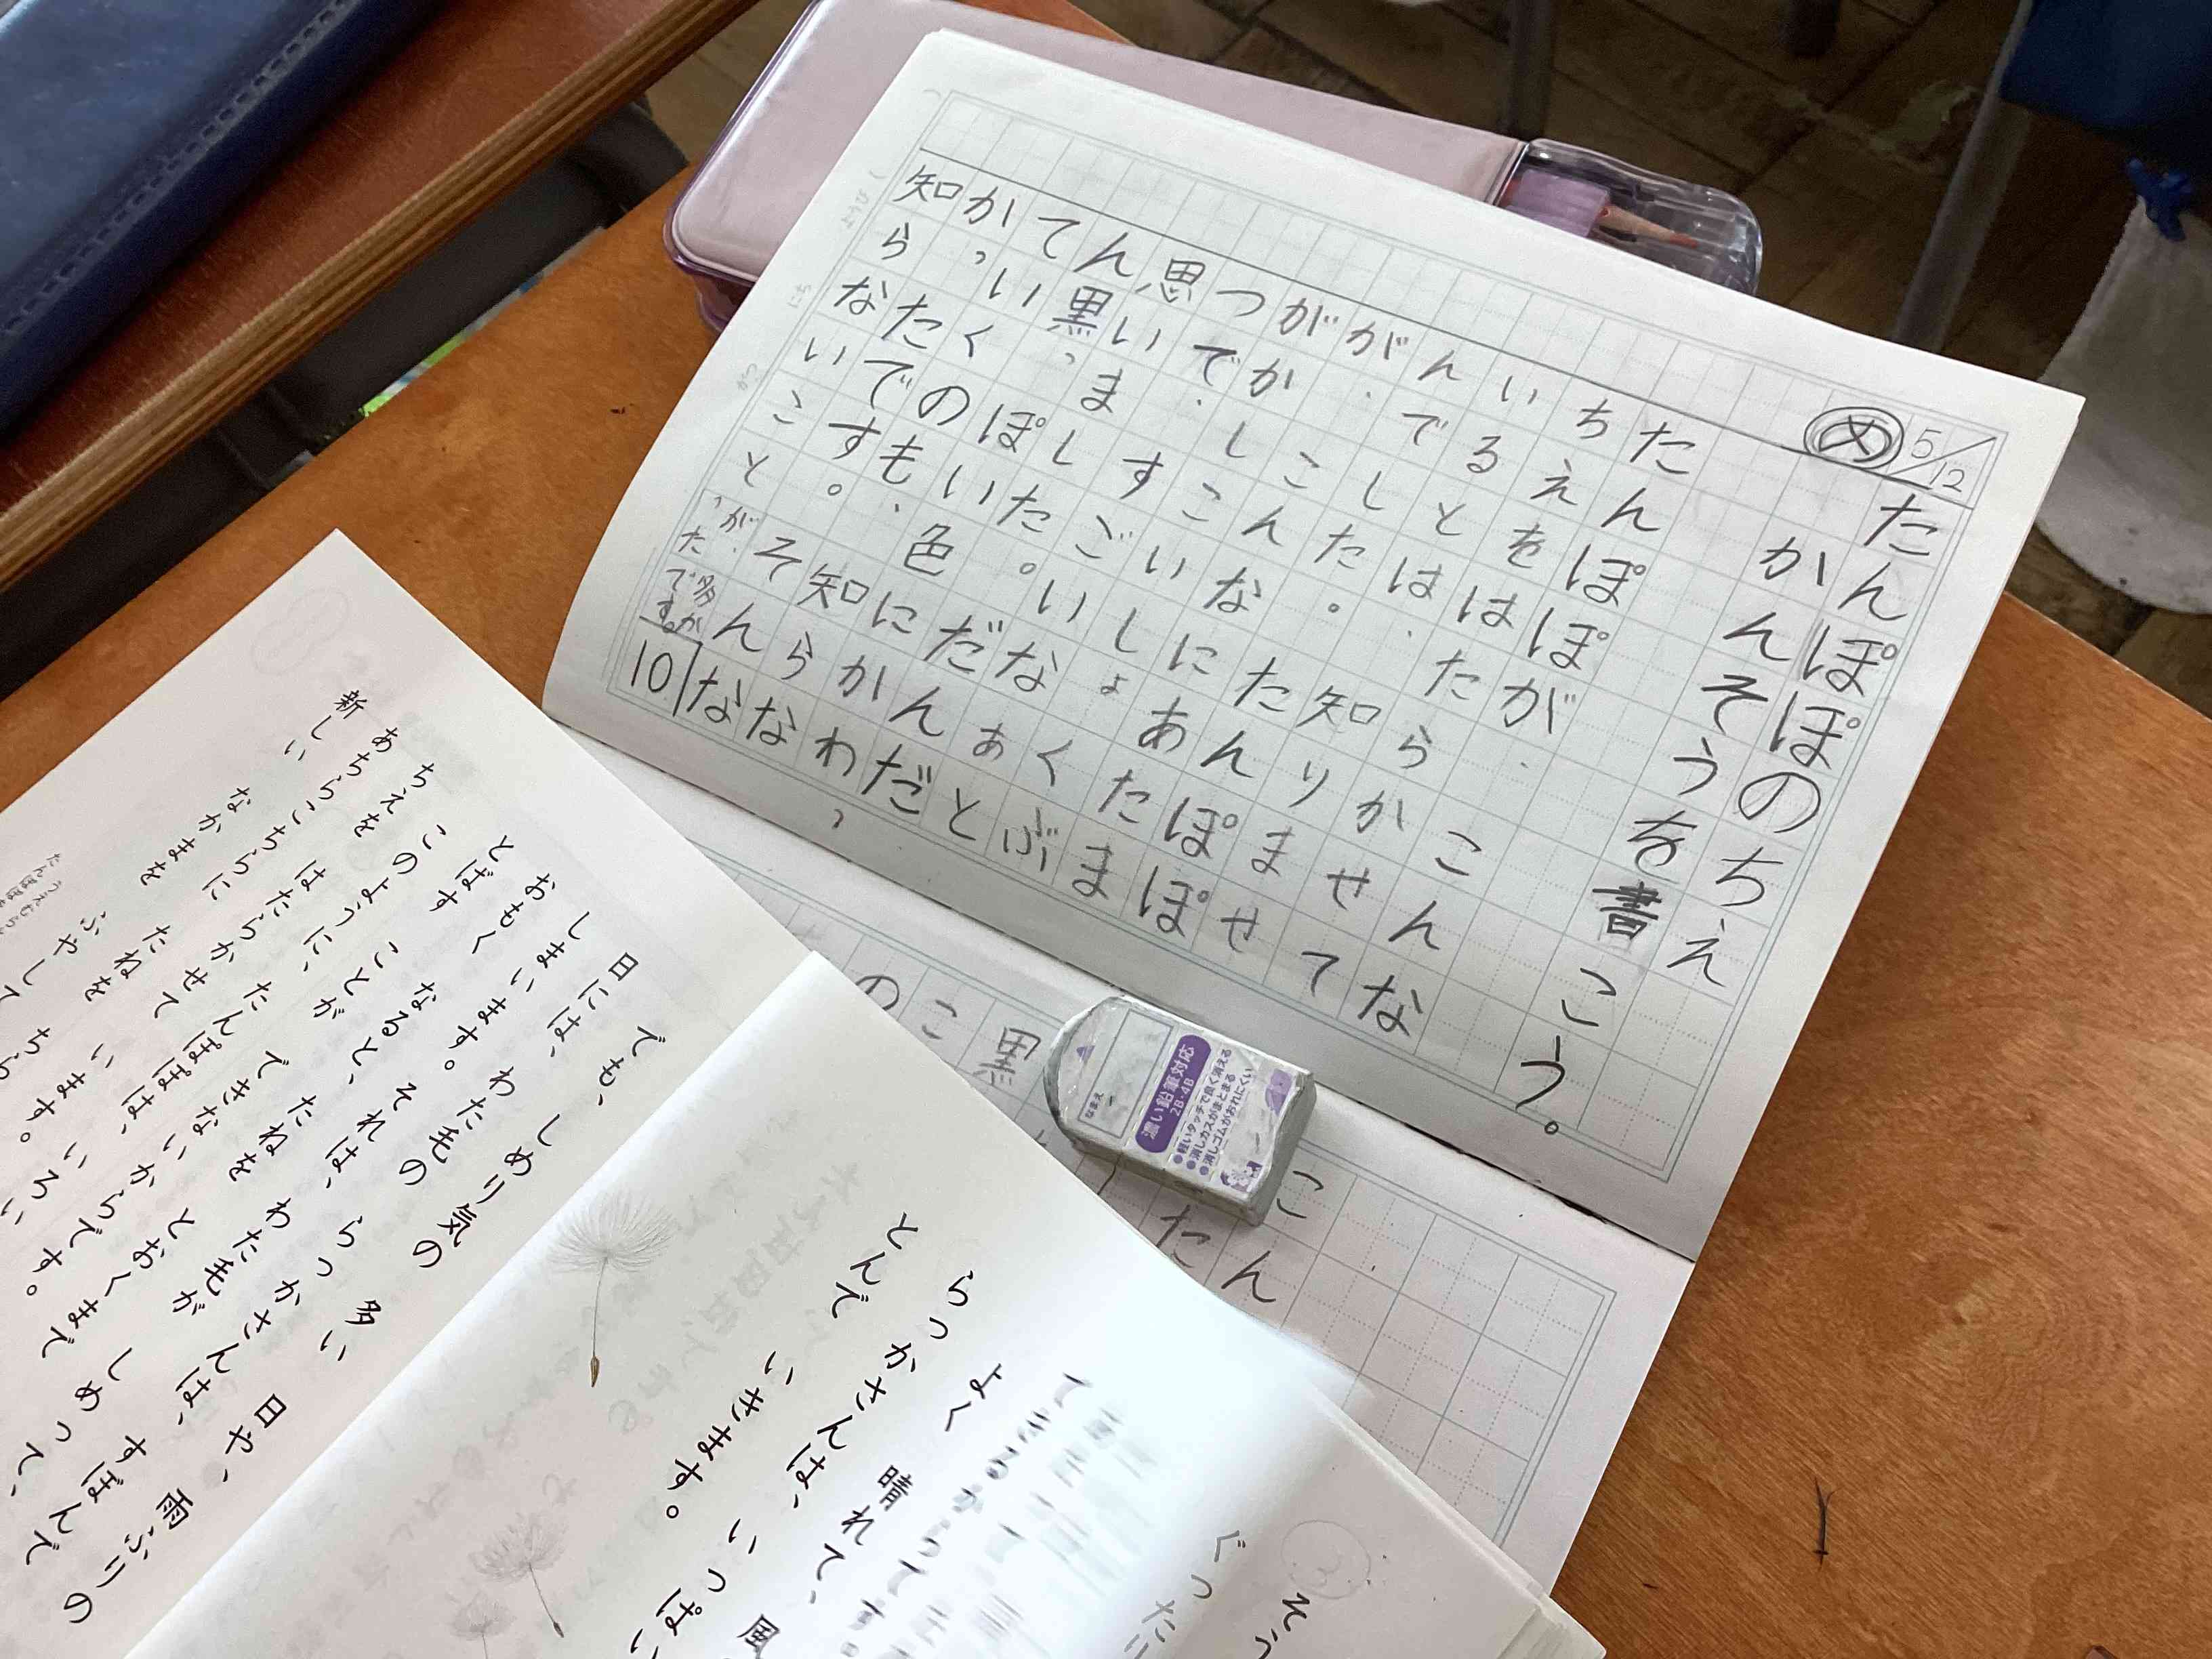 め 5/12
たんぽぽのちえ
かんそうを書こう。
たんぽぽが、こんな
ちえをはたらかせて
いるとは、知りませ
んでした。たんぽぽ
が、こんなにあたま
がかしこいしょくぶ
つで、すごいなぁと
思いました。だんだ
ん黒っぽい色にかわっ
ていくのも、知らな
かったです。そんな
知らないことが多かったです。
10
なまえ
濃い鉛筆対応
2B・4B
●軽いタッチで良く消える
●消しカスがまとまる
●消しゴムがおれにくい
よく 晴れて、 風
らっかさんは、 いっぱい
とんで いきます。
でも、 しめり気の 多い 日や、 雨ぶりの
日には、 わた毛の らっかさんは、 すぼんで
しまいます。 それは、 わた毛が しめって、
おもく なると、 たねを とおくまで
とばす ことが できないからです。
このように、 たんぽぽは、 いろい
ちえを はたらかせて います。
あちらこちらに たねを ちら
新しい なかまを ふやして